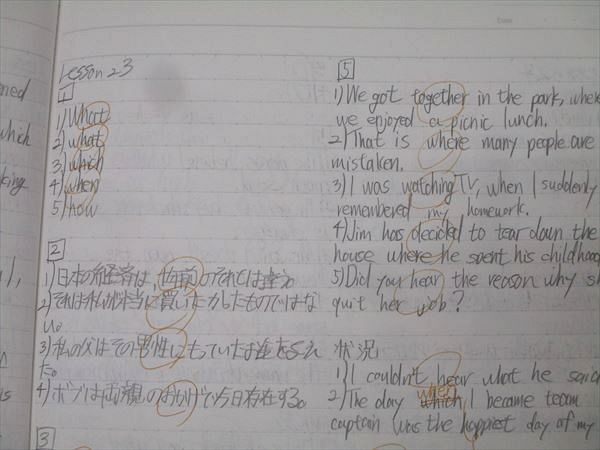 Lesson 23
1
1) What
2) what
3) which
4) when
5) How
2
1) 日本の経済は、
2) それは私が本当に買いたかったものではな
い。
3) 私の
た。
4) ボブは両親のおかげで今日存在する。
3
5
1) We got together in the park, where
we enjoyed a picnic lunch.
2) That is where many people are
mistaken.
3) I was watching TV, when I suddenly
remembered my homework.
4) Jim has decided to tear down the
house where he spent his childhood
5) Did you hear the reason why sh
quit her job?
状況
1) I couldn't hear what he said
2) The day when I became team
captain was the happiest day of my
which